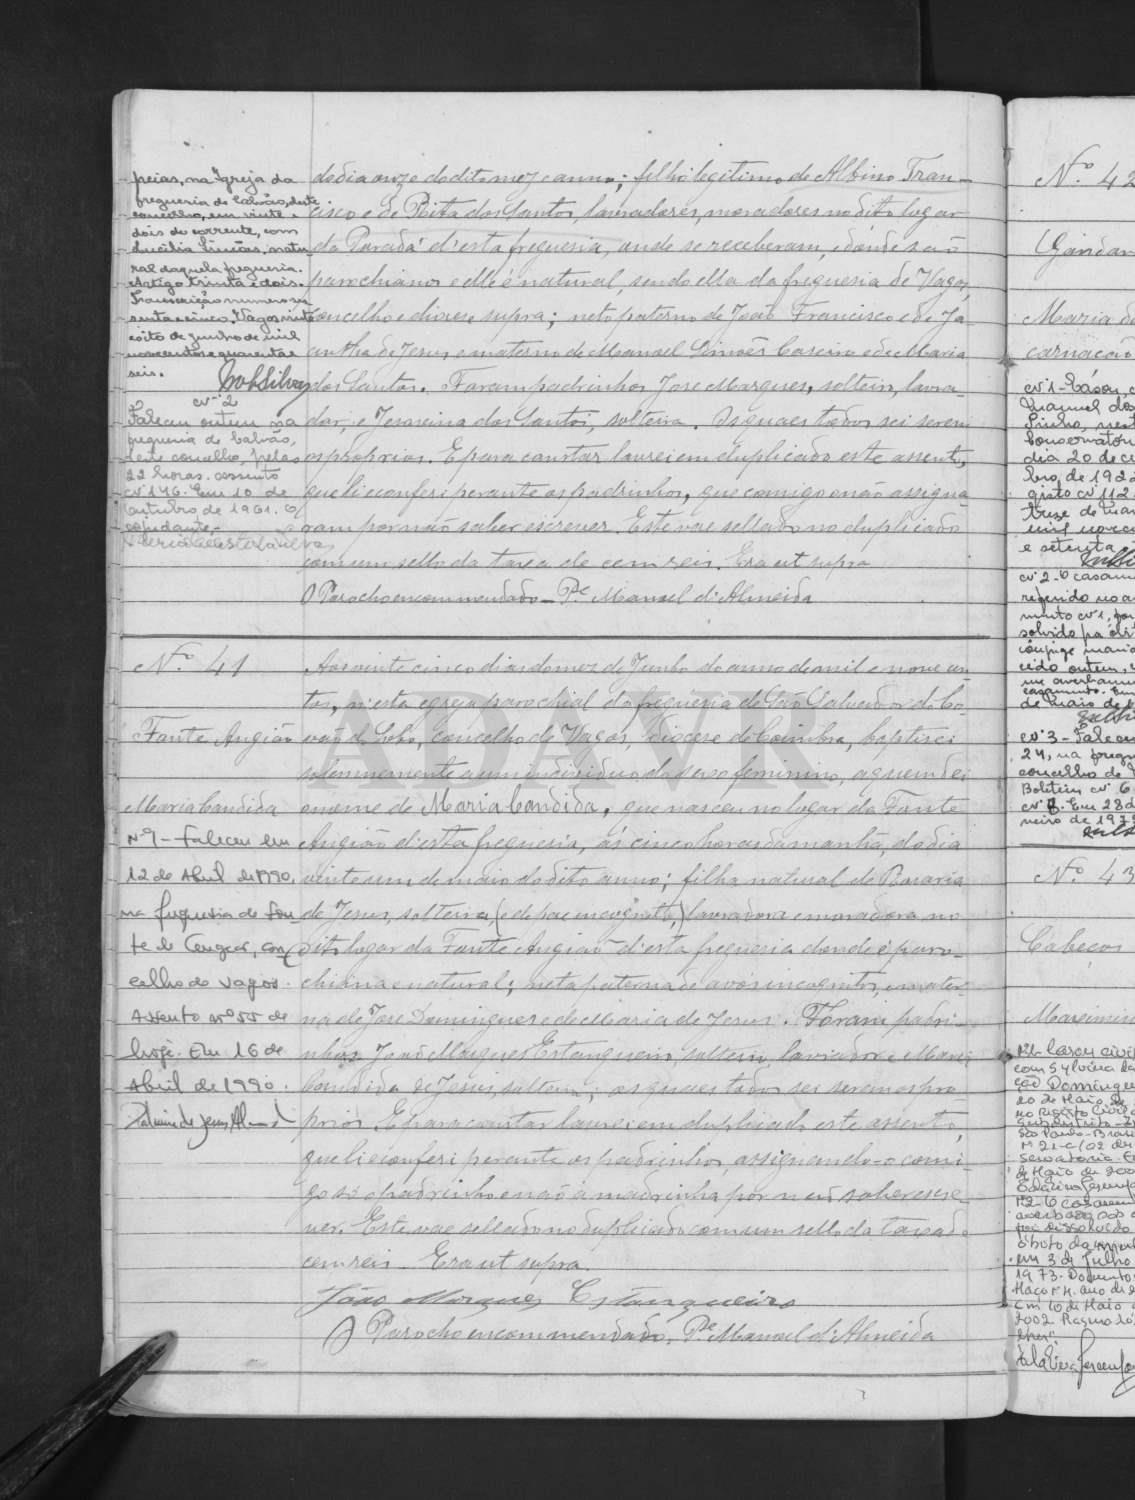 peias, na Igreja da
freguesia de Calvão, deste
concelho, em vinte e
dois do corrente, com
Lucilia Simões, natu-
ral daquela freguesia.
Artigo trinta e dois.
Transcrição numero ses-
senta e cinco. Vagos, vinte
e oito de junho de mil
novecentos e quarenta e
seis.
nº 2
Faleceu ontem na
freguesia de Calvão,
deste concelho, pelas
22 horas. assento
nº 146. Em 10 de
Outubro de 1961. O
ajudante-
do dia onze do dito mez e anno; filho legitimo de Albino Fran-
cisco e de Rita dos Santos, lavradores, moradores no dito lugar
da Parada d'esta freguesia, onde se receberam, e d'onde são
parochianos e elle é natural, sendo ella da freguesia de Vagos,
concelho e diocese supra; neto paterno de João Francisco e de Ja-
cintha de Jesus e materno de Manoel Simões Caseiro e de Maria
dos Santos. Foram padrinhos José Marques, solteiro, lavra-
dor, e Jesuina dos Santos, solteira. Os quaes todos sei serem
os proprios. E para constar lavrei em duplicado este assento,
que li e conferi perante os padrinhos, que comigo não assigna-
ram por não saber escrever. Este vae sellado no duplicado
com um sello da taxa de cem reis. Era ut supra
O Parocho encommendado - P.e Manoel d'Almeida
N.º 41
Fonte Angião
Maria Candida
Nº 1 - Faleceu em
12 de Abril de 1990,
na freguesia de Fon-
te de Angeão, con-
celho de Vagos.
Assento nº 55 de
hoje. Em 16 de
Abril de 1990.
Aos vinte cinco dias do mez de Junho do anno de mil e nove cen-
tos, n'esta egreja parochial da freguesia de São Salvador do Co-
vão do Lobo, concelho de Vagos, diocese de Coimbra, baptisei
solemnemente a um individuo do sexo feminino, a quem dei
o nome de Maria Candida, que nasceu no lugar da Fonte
Angião d'esta freguesia, ás cinco horas da manhã, do dia
vinte um de maio do dito anno; filha natural de Rosaria
de Jesus, solteira, (e de pae incognito,) lavradora e moradora no
dito lugar da Fonte Angião d'esta freguesia donde é paro-
chiana e natural; neta paterna de avós incognitos, e mater-
na de José Domingues e de Maria de Jesus. Foram padri-
nhos João Marques Estanqueiro, solteiro, lavrador e Maria
Candida de Jesus, solteira; os quaes todos sei serem os pro-
prios. E para constar lavrei em duplicado este assento,
que li e conferi perante os padrinhos, assignando-o comi-
go só o padrinho e não a madrinha por não saber escre-
ver. Este vae sellado no duplicado com um sello da taxa de
cem reis. Era ut supra.
João Marques Estanqueiro
O Parocho encommendado, P.e Manoel d'Almeida
ADAVR
N.º 42
Maria da
carnação
nº 1 - Casou,
Manuel dos
dia 20 de
bro, de 1922
e setenta
nº 2 - O casam
referido no
nº 3 - Faleceu
24, na fregu
concelho de
Boletim nº 6
N.º 43
Cabeços
Nº 1 - Casou civil
com Sylvina da
Domingue
20 de Maio de
no Registo Civil
São Paulo - Brasi
de Maio de 200
Nº 2 - O casamen
foi dissolvido
óbito da
em 3 de Julho
1973. Documento
Maço nº 4. ano de 2
Em 10 de Maio
2002.